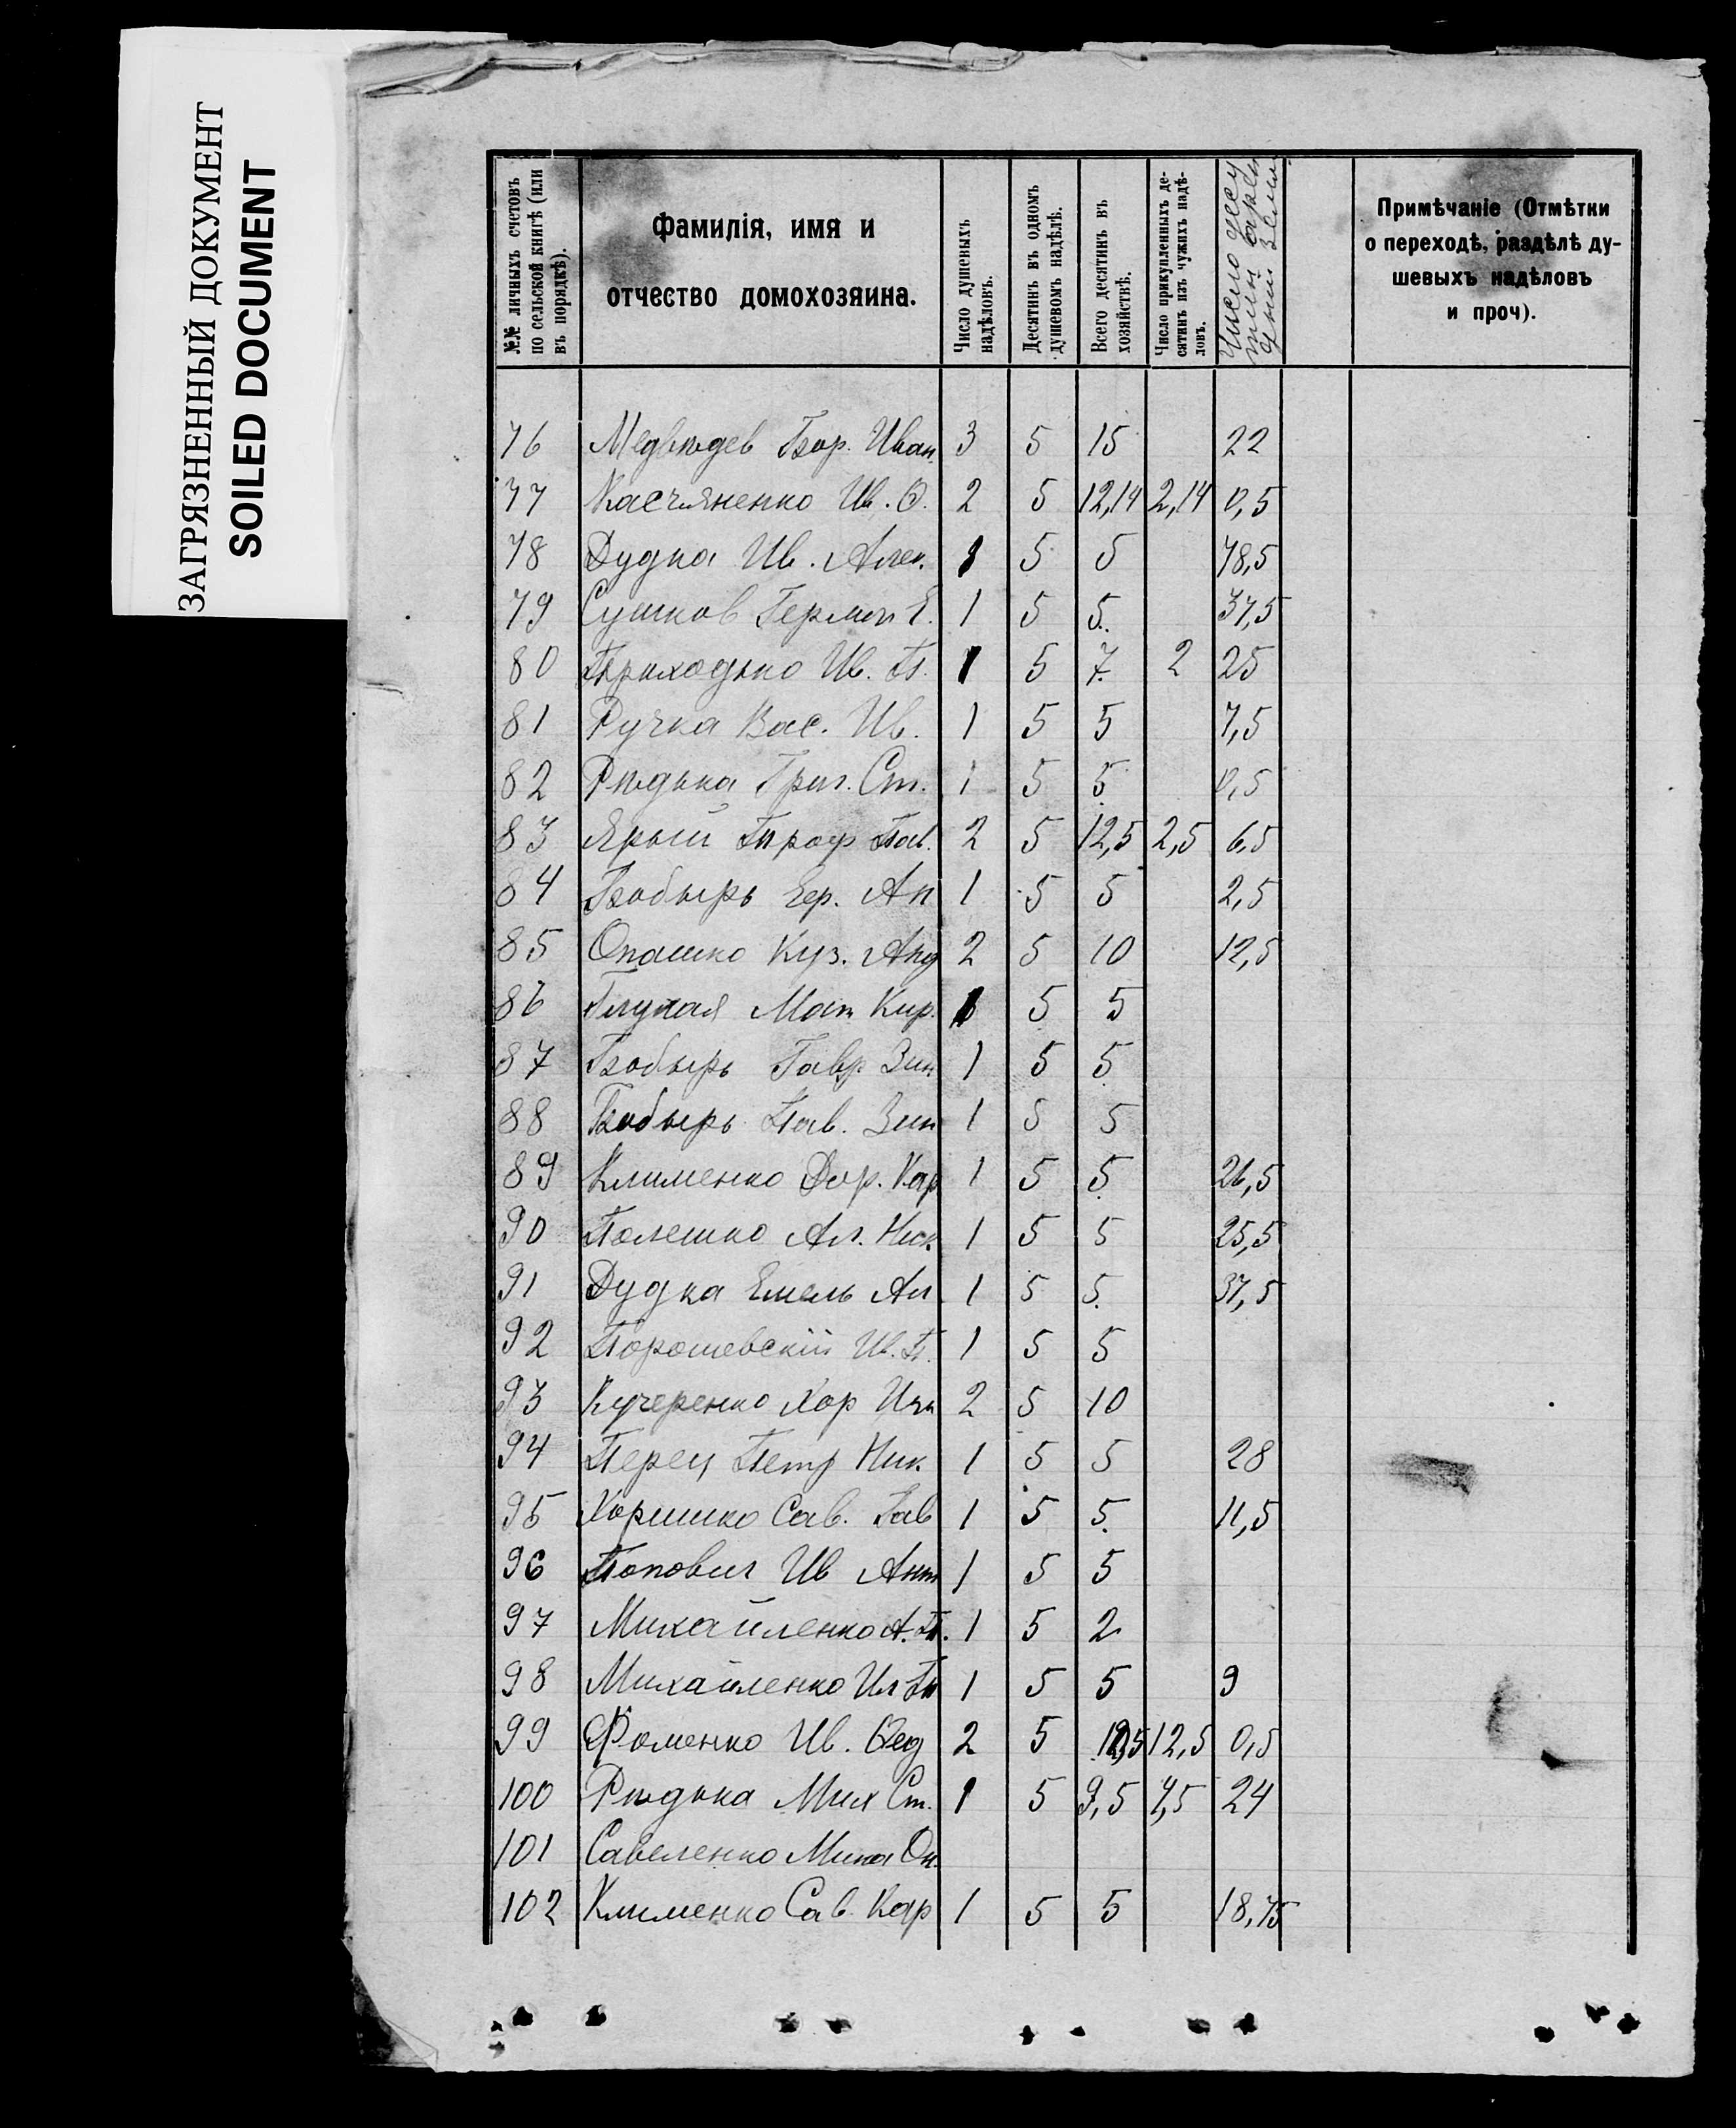 ЗАГРЯЗНЕННЫЙ ДОКУМЕНТ
SOILED DOCUMENT
№№ личныхъ счетовъ
по сельской книгѣ (или
въ порядкѣ).
Фамилія, имя и
отчество домохозяина.
Число душевыхъ
надѣловъ.
Десятинъ въ одномъ
душевомъ надѣлѣ.
Всего десятинъ въ
хозяйствѣ.
Число прикупленныхъ де-
сятинъ изъ чужихъ надѣ-
ловъ.
Число десу
тин арен
дной земли
Примѣчаніе (Отмѣтки
о переходѣ, раздѣлѣ ду-
шевыхъ надѣловъ
и проч).
76 Медвѣдев Бор. Иван. 3 5 15 22
77 Касчяненко Ив. 2 5 12,14 2,14 0,5
78 Дудка Ив. Алек. 1 5 5 78,5
79 Сушков Герман Е. 1 5 5. 37,5
80 Приходько Ив. П. 1 5 7. 2 25
81 Ручка Вас. Ив. 1 5 5 7,5
82 Рѣдька Григ. Ст. 1 5 5. 0,5
83 Ярый Проф Пав. 2 5 12,5 2,5 6,5
84 Бобырь Гер. Ан 1 5 5 2,5
85 Опашко Куз. Анд 2 5 10 12,5
86 Глухая Мат Кир. 1 5 5
87 Бобырь Гавр. Зин 1 5 5.
88 Бобырь Пав. Зин 1 5 5
89 Клименко Дор. Кар 1 5 5. 26,5
90 Полешко Ал. Ник. 1 5 5 25,5
91 Дудка Емель Ал 1 5 5. 37,5
92 Порошевскій Ив. П. 1 5 5
93 Кучеренко Хар 2 5 10
94 Перец Петр Ник. 1 5 5 28
95 Хоришко Сав. Гав 1 5 5. 11,5
96 Попович Ив Ант 1 5 5
97 Михайленко А. П. 1 5 2
98 Михайленко Ил 1 5 5 9
99 Фоменко Ив. Фед 2 5 12,5 0,5
100 Рѣдька Мих Ст. 1 5 9,5 4,5 24
101 Савеленко Мина Он.
102 Клименко Сав. Кар 1 5 5 18,75